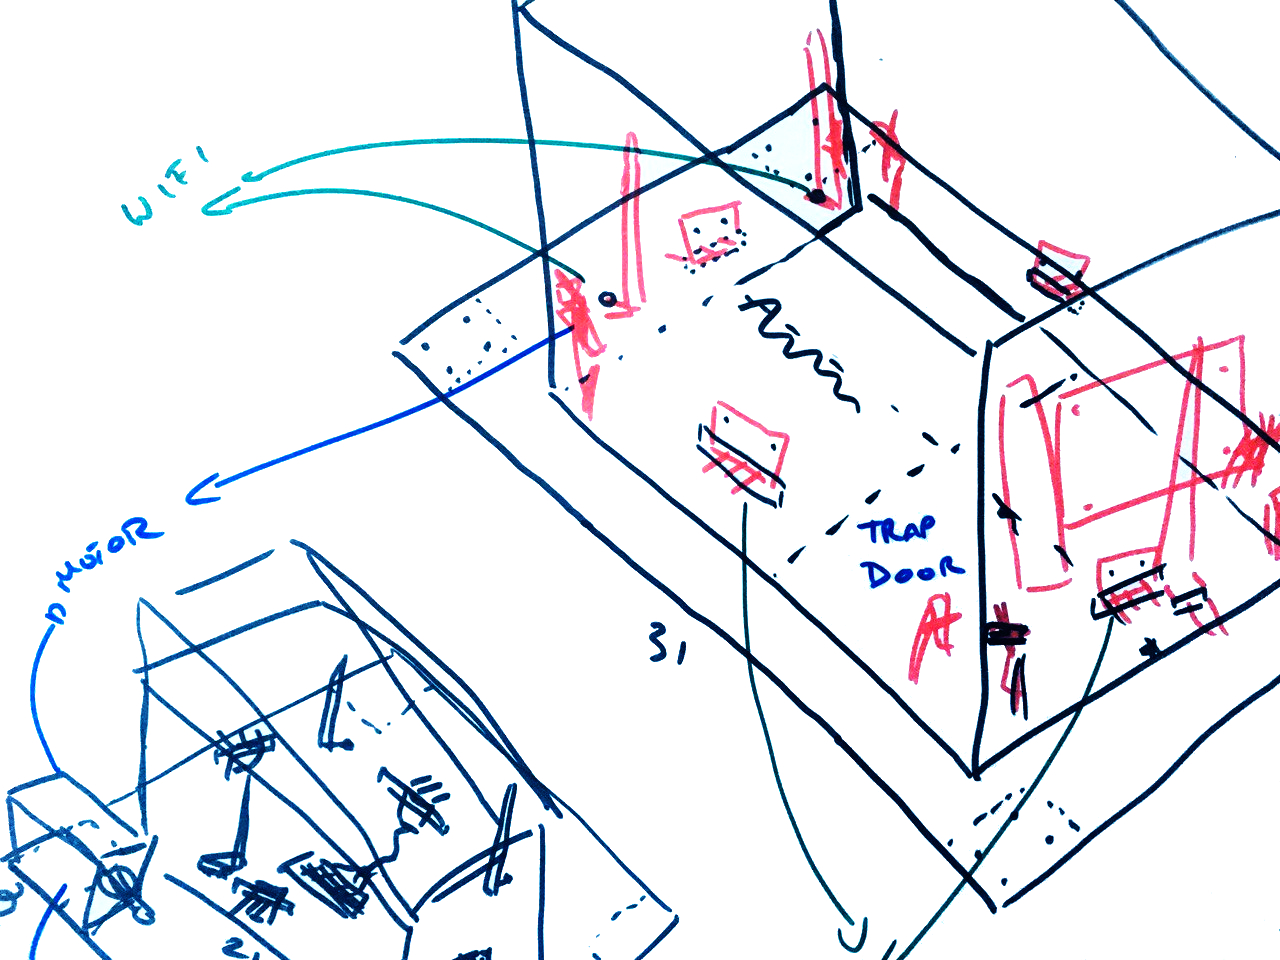 WIFI
D MOTOR
TRAP
DOOR
3,
2,